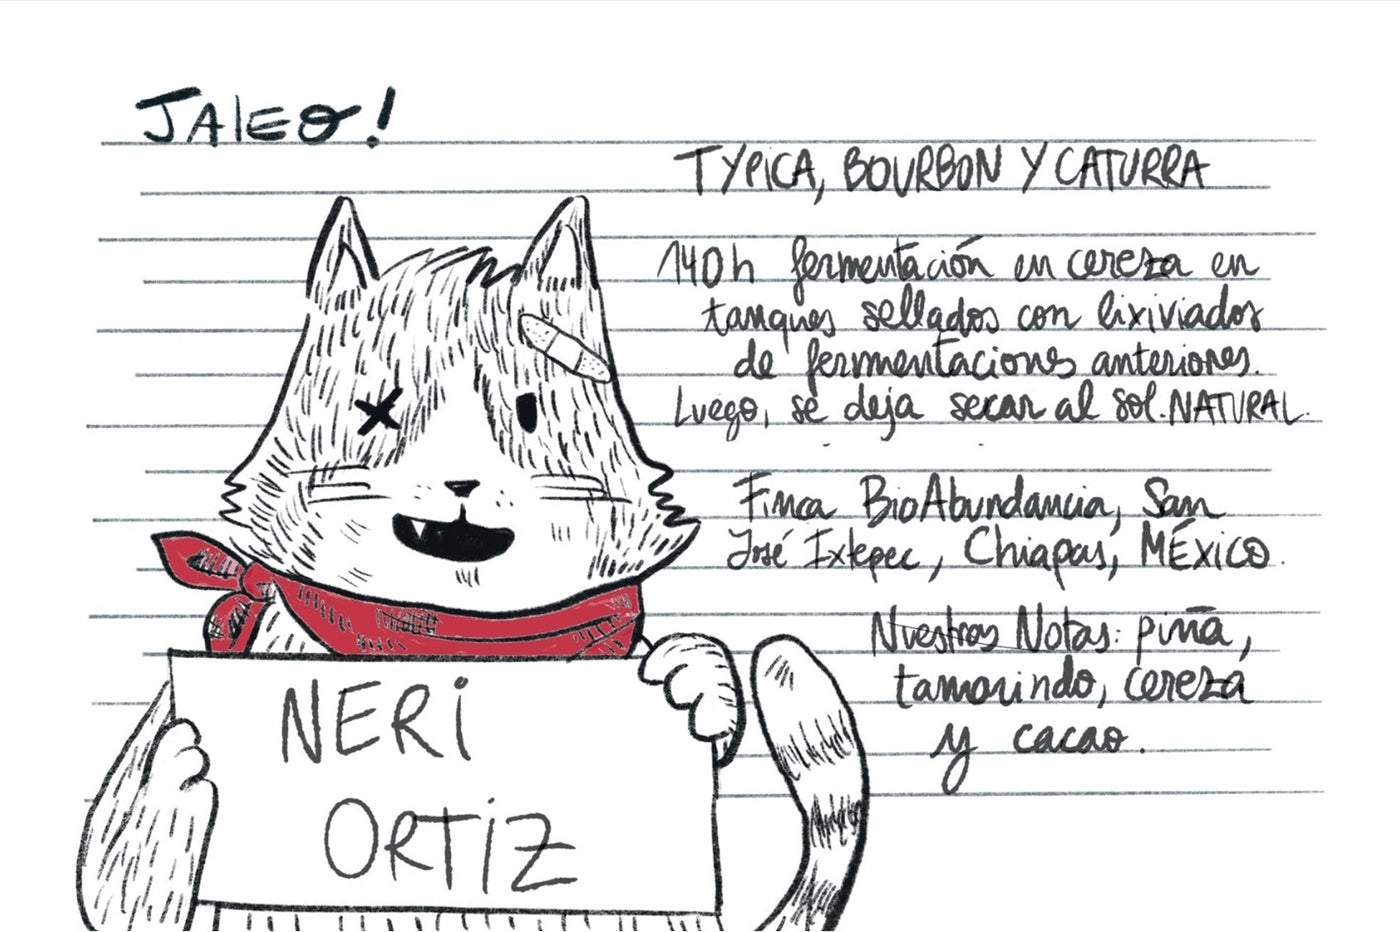 JALEO!
TYPICA, BOURBON Y CATURRA
140h fermentación en cereza en
tanques sellados con lixiviados
de fermentaciones anteriores.
Luego, se deja secar al sol. NATURAL.
Finca BioAbundancia, San
José Ixtepec, Chiapas, MÉXICO.
Nuestras Notas: piña,
tamarindo, cereza
y cacao.
NERI
ORTIZ